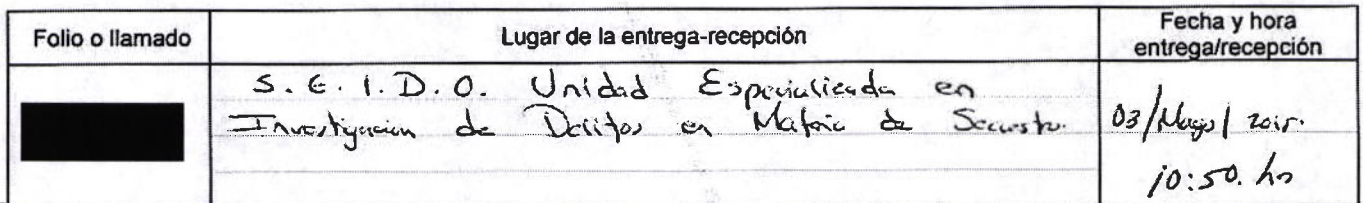 Folio o llamado
Lugar de la entrega-recepción
Fecha y hora
entrega/recepción
S.E.I.D.O. Unidad Especializada en
Investigación de Delitos en Materia de Secuestro.
03/Mayo/2015.
10:50. hs